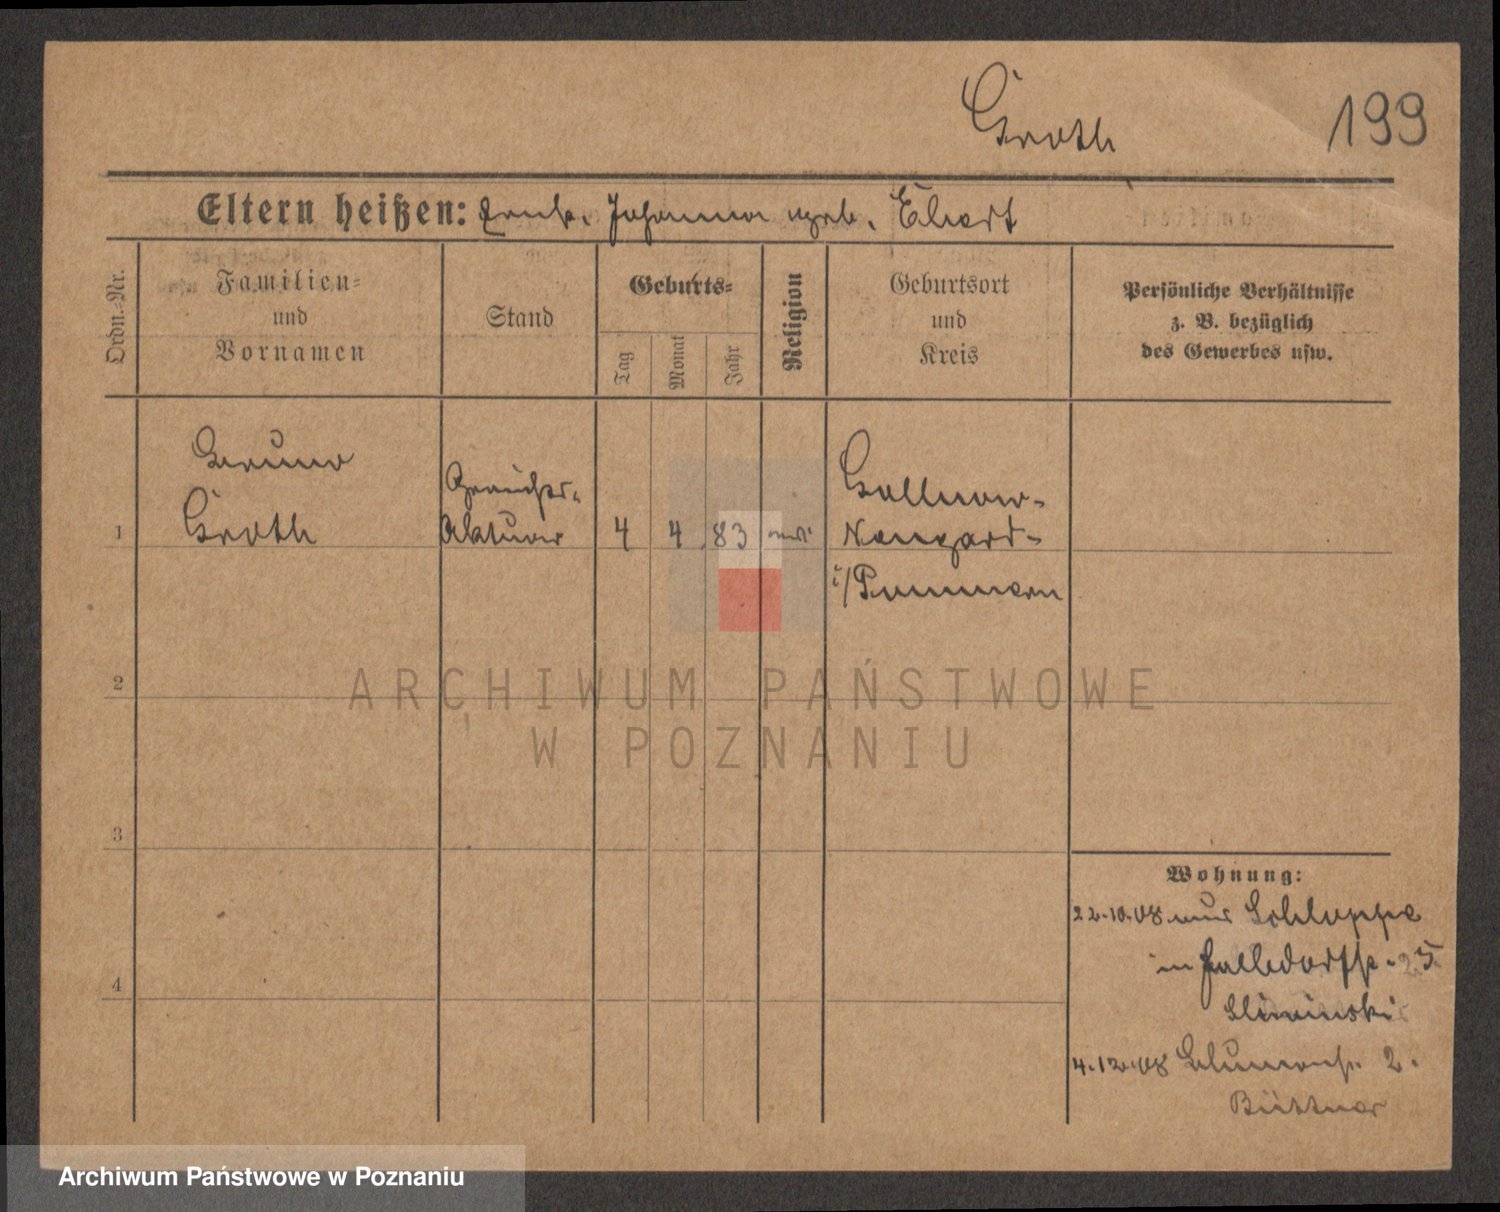 Groth
199
Eltern heißen: Johanna geb. Ehlert
Ordn.-Nr.
Familien-
und
Vornamen
Stand
Geburts-
Tag
Monat
Jahr
Religion
Geburtsort
und
Kreis
Persönliche Verhältnisse
z. B. bezüglich
des Gewerbes usw.
Bruno
Groth
Gerichts-
Aktuar
1
4
4
83
Gollnow-
Naugard-
i/Pommern
2
3
4
Wohnung:
22.10.08 aus Schloppe
in Halbdorfstr. 25
Sliwinski
4.12.08 Blumenstr. 2.
Büttner
ARCHIWUM PAŃSTWOWE
W POZNANIU
Archiwum Państwowe w Poznaniu